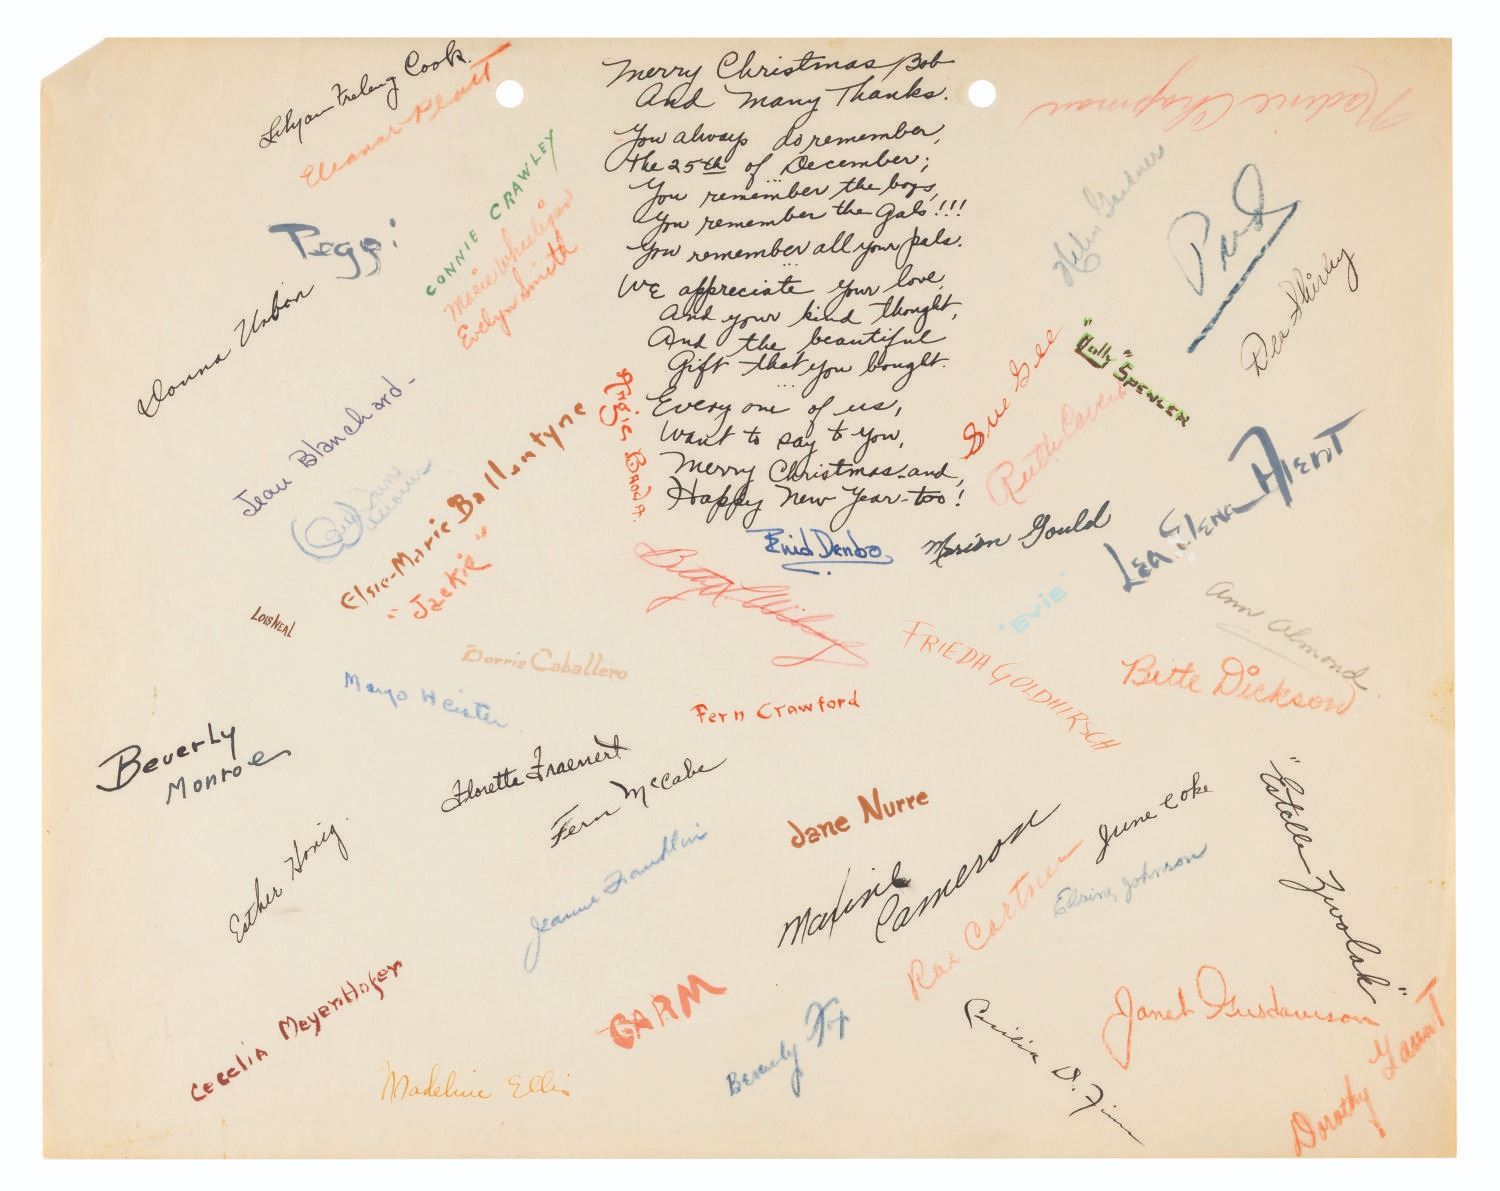 Merry Christmas Bob
And Many Thanks.
You always do remember,
the 25th of December;
You remember the boys,
You remember the gals!!!
You remember all your pals.
We appreciate your love,
And your kind thought,
And the beautiful
Gift that you bought.
Every one of us,
Want to say to you,
Merry Christmas and,
Happy New Year-too!
Lilyan Freleng Cook.
Eleanor Platt
Nadine Chapman
CONNIE CRAWLEY
Marie Wheeligan
Evelyn Smith
Peggi
Helen Gardner
Dee Shirley
Donna Urban
Sue Gee
"Dolly" SPENCER
Ruth Cavell
Jean Blanchard-
Angie Broda.
Elsie-Marie Ballantyne
"Jackie"
Enid Denbo
Marion Gould
LEA ELENA AIENT
"EVIE"
Ann Almond.
LOIS NEAL
Betty
Dorris Caballero
FRIEDA GOLDHIRSCH
Bette Dickson
Margo Heister
Fern Crawford
Beverly
Monroe
Florette Fraenert
Fern McCabe
Jane Nurre
June Coke
"Estelle Zwolak"
Esther Honig.
Jeanne Franklin
Maxine
Cameron
Rae Cartner
Elaine Johnson
Cecelia MeyenHofer
GARM
Janet Gusdavison
Madeline Ellis
Beverly Fox
Cecilia D. Finn
Dorothy Gaunt